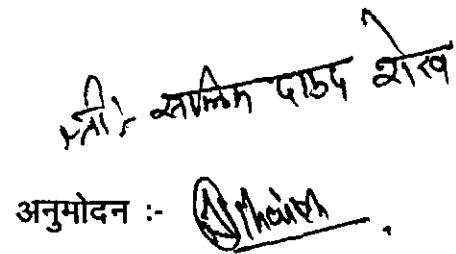 श्री :- सालिम दाउद शेख
अनुमोदन :-